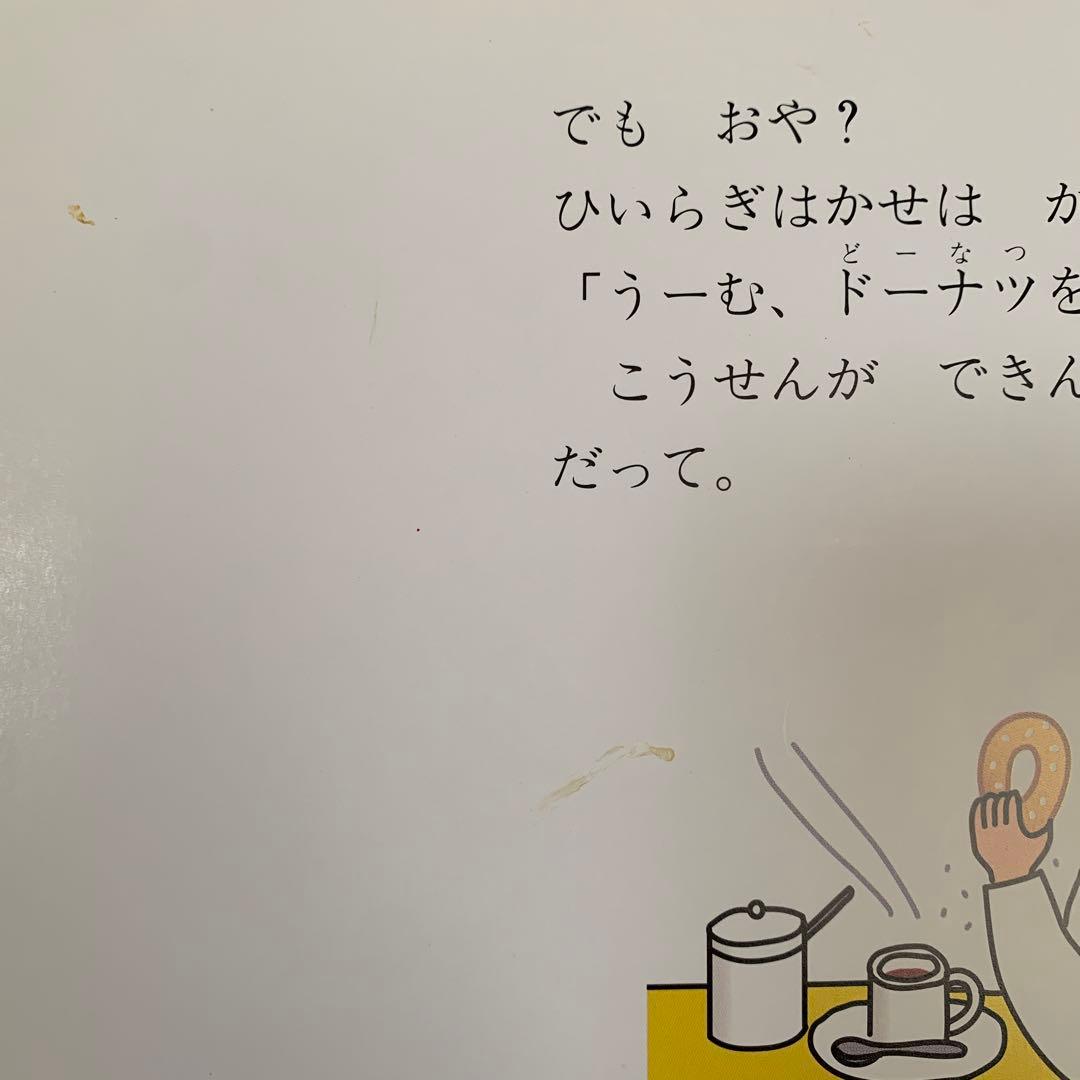 でも　おや？
ひいらぎはかせは　か
どーなつ
「うーむ、ドーナツを
こうせんが　できん
だって。